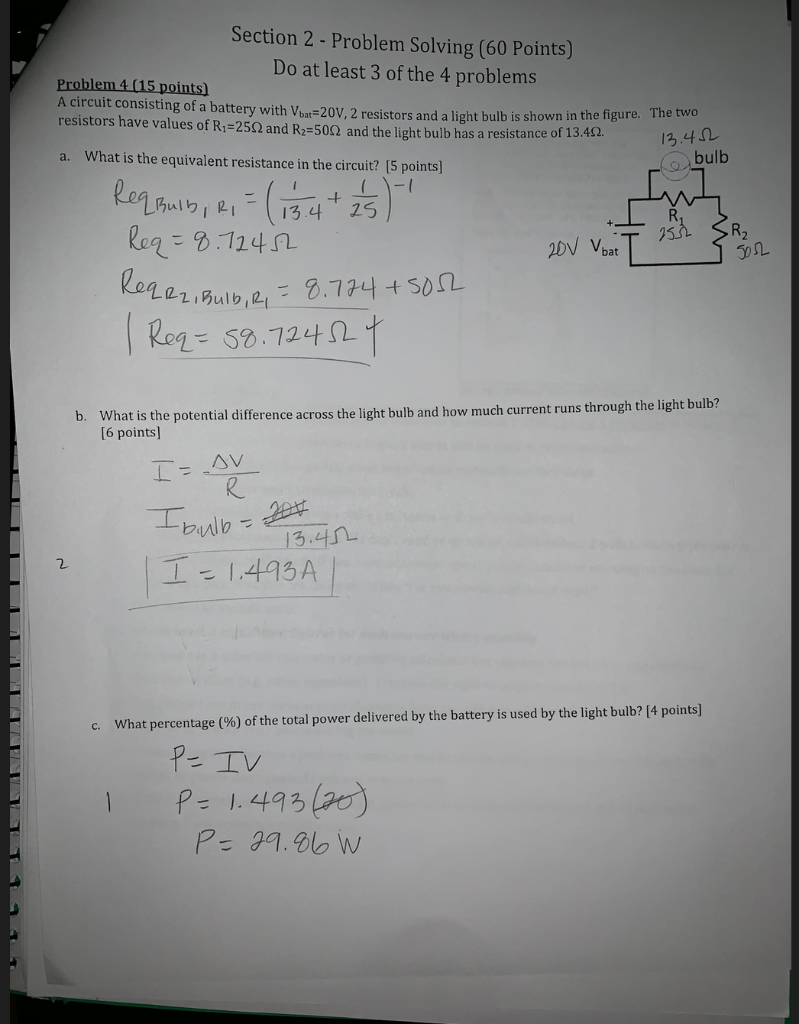 Section 2 - Problem Solving (60 Points)
Do at least 3 of the 4 problems
Problem 4 (15 points)
A circuit consisting of a battery with Vbat=20V, 2 resistors and a light bulb is shown in the figure. The two
resistors have values of R1=25Ω and R2=50Ω and the light bulb has a resistance of 13.4Ω.
13.4Ω
bulb
R1
25Ω
R2
50Ω
+
-
20V Vbat
a. What is the equivalent resistance in the circuit? [5 points]
Req Bulb, R1 = (1/13.4 + 1/25)^-1
Req = 8.724Ω
Req R2, Bulb, R1 = 8.724 + 50Ω
Req = 58.724Ω
b. What is the potential difference across the light bulb and how much current runs through the light bulb?
[6 points]
I = ΔV/R
Ibulb = 20V/13.4Ω
2
I = 1.493A
c. What percentage (%) of the total power delivered by the battery is used by the light bulb? [4 points]
P = IV
1
P = 1.493(20)
P = 29.86 W